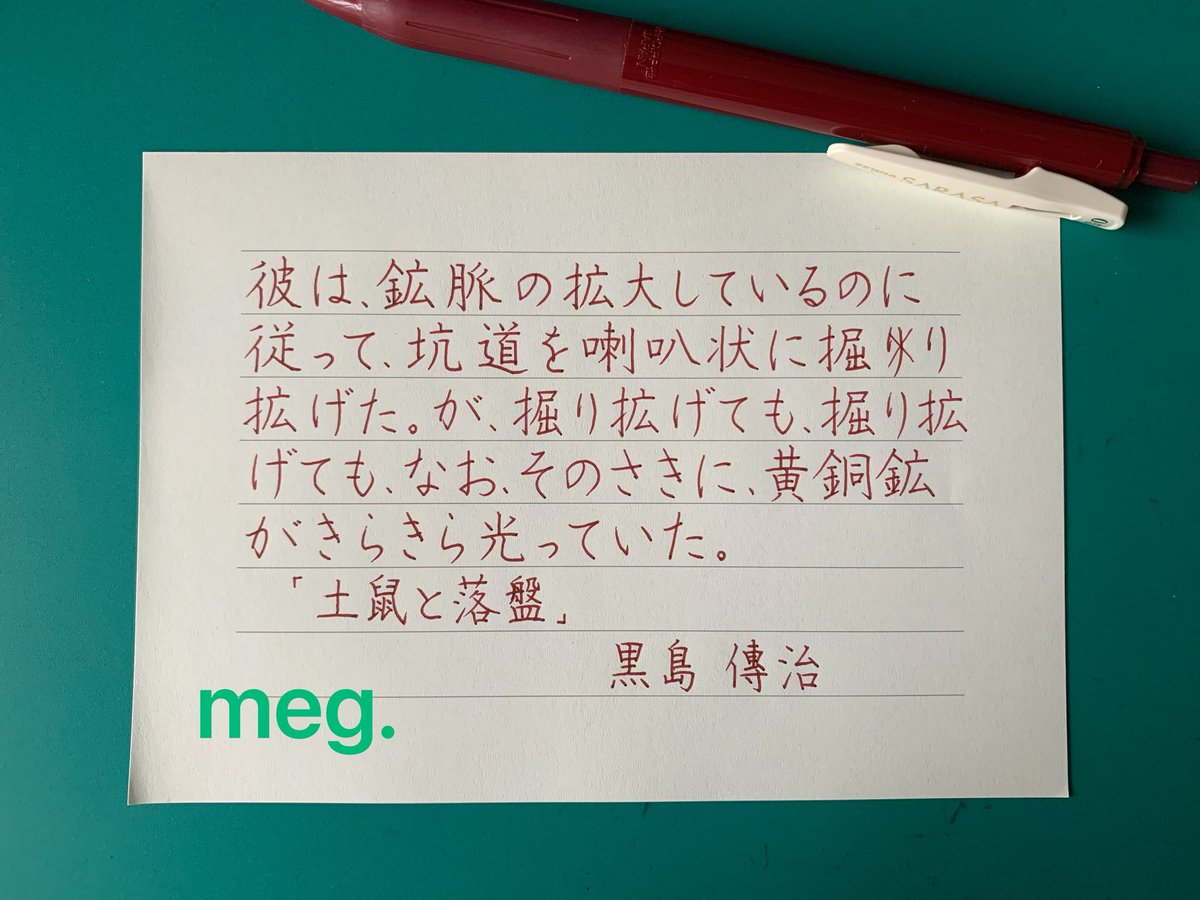 ZEBRA SARASA
彼は、鉱脈の拡大しているのに
従って、坑道を喇叭状に掘り
拡げた。が、掘り拡げても、掘り拡
げても、なお、そのさきに、黄銅鉱
がきらきら光っていた。
「土鼠と落盤」
黒島 傳治
meg.